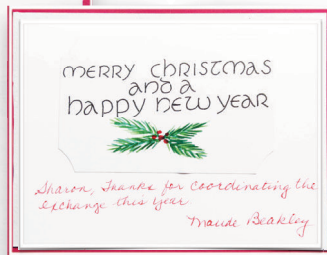 MERRY CHRISTMAS
and a
happy new year
Sharon, Thanks for coordinating the
exchange this year
Maude Beakley